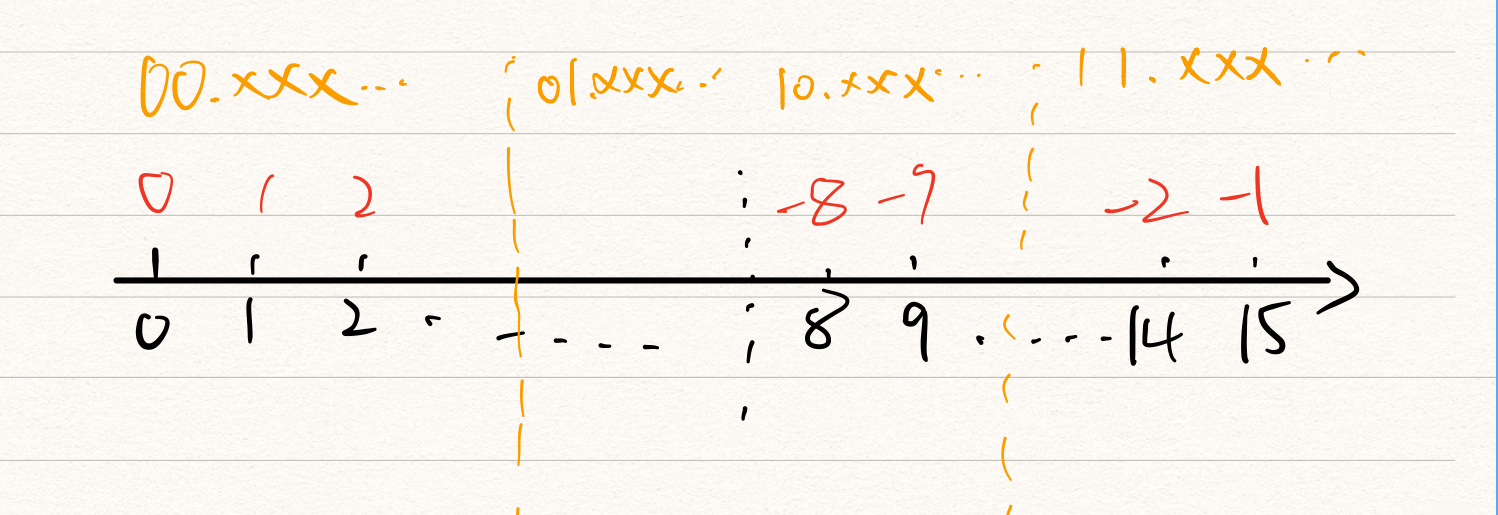 00.xxx... 01.xxx... 10.xxx... 11.xxx...
0 1 2 -8 -7 -2 -1
0 1 2 . - - - - 8 9 . . . . 14 15